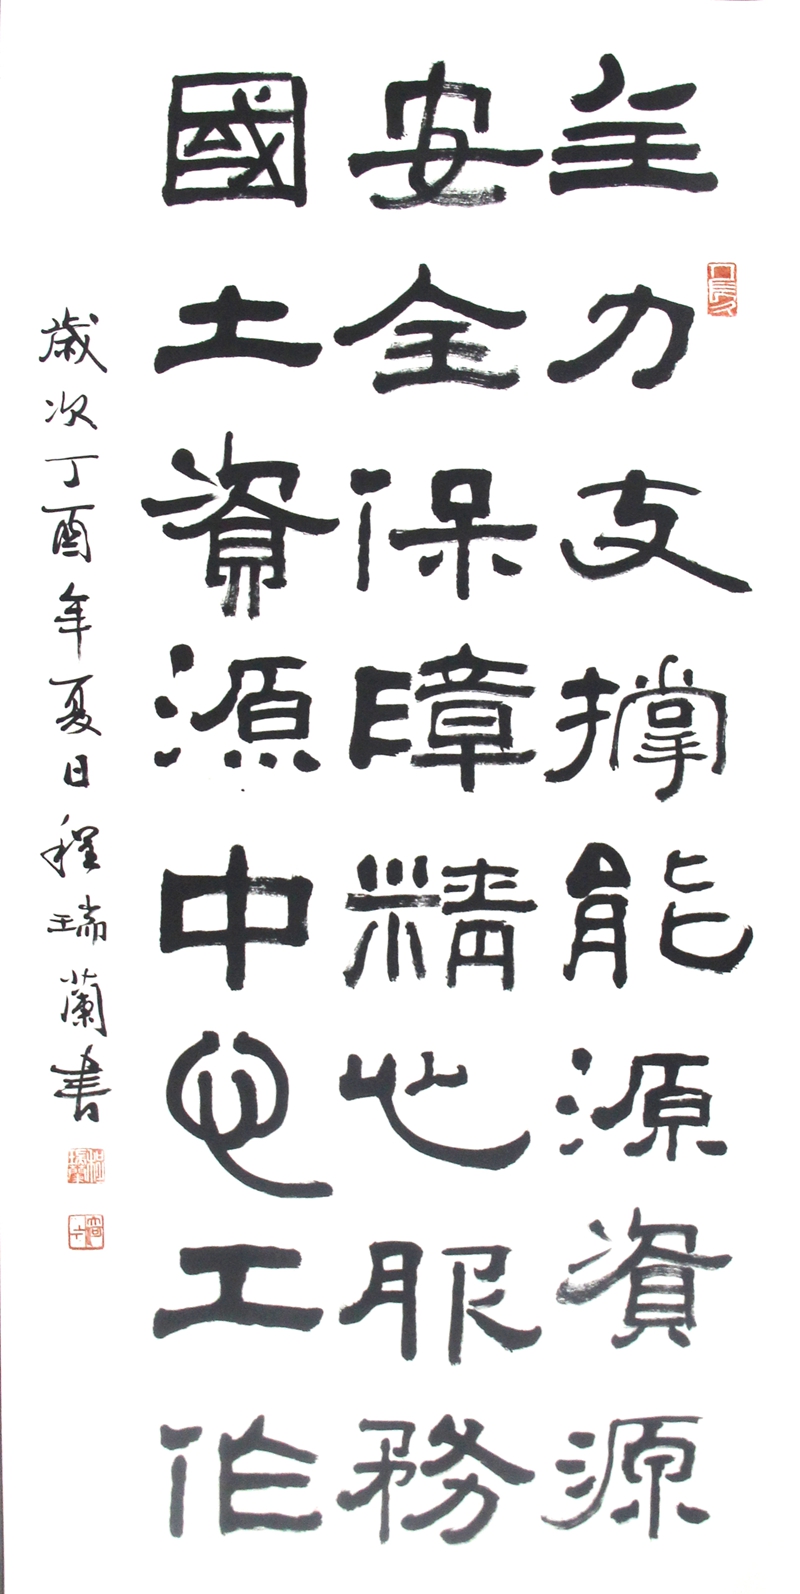 全力支撑能源資源
安全保障精心服務
國土資源中心工作
歳次丁酉年夏日程瑞蘭書